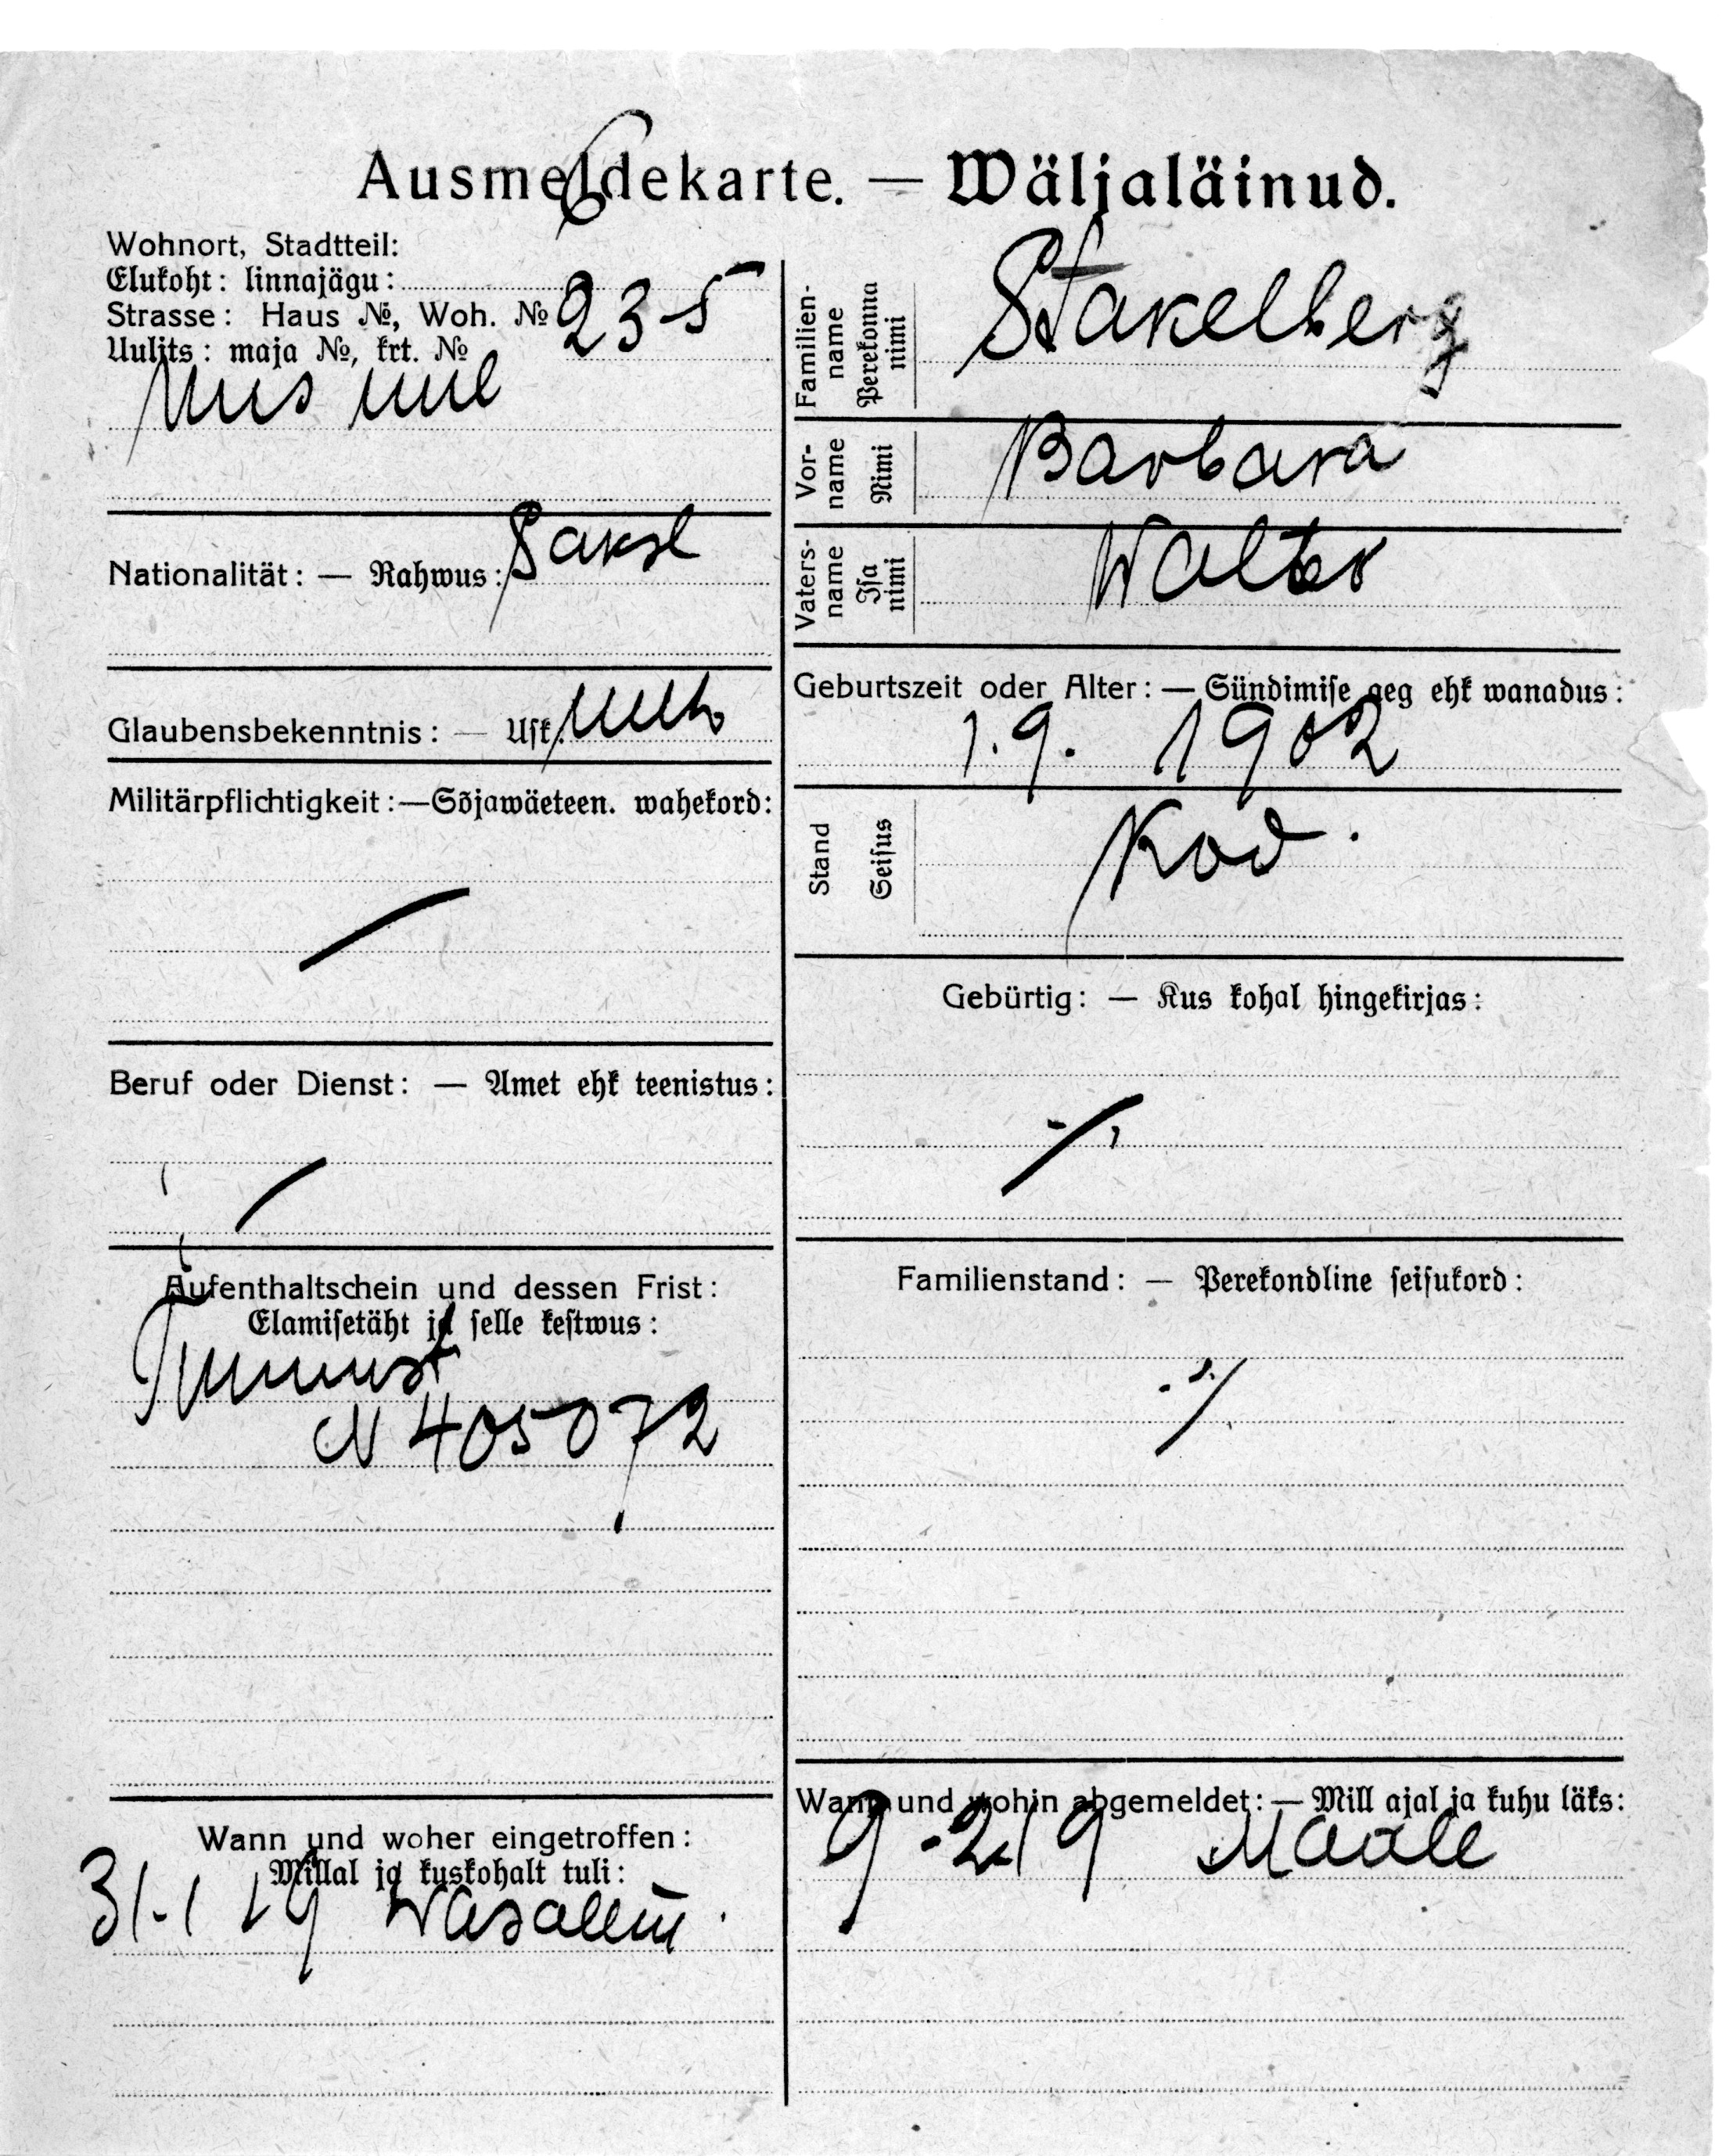 6
Ausmeldekarte. — Wäljaläinud.
Wohnort, Stadtteil:
Elukoht: linnajägu:
Strasse: Haus №, Woh. № 23-5
Uulits: maja №, krt. №
Nationalität: — Rahwus: Saksl
Glaubensbekenntnis: — Usk: Luth
Militärpflichtigkeit: — Sõjawäeteen. wahekord:
Beruf oder Dienst: — Amet ehk teenistus:
Aufenthaltschein und dessen Frist:
Elamisetäht ja selle kestwus:
N 405072
Wann und woher eingetroffen:
Millal ja kuskohalt tuli:
31-1 19 Wasalem.
Familien-
name
Perekonna
nimi
Stakelberg
Vor-
name
Nimi
Barbara
Vaters-
name
Isa
nimi
Walter
Geburtszeit oder Alter: — Sündimise aeg ehk wanadus:
1.9. 1902
Stand
Seisus
Kod.
Gebürtig: — Kus kohal hingekirjas:
Familienstand: — Perekondline seisukord:
Wann und wohin abgemeldet: — Mill ajal ja kuhu läks:
9-2-19 Maale